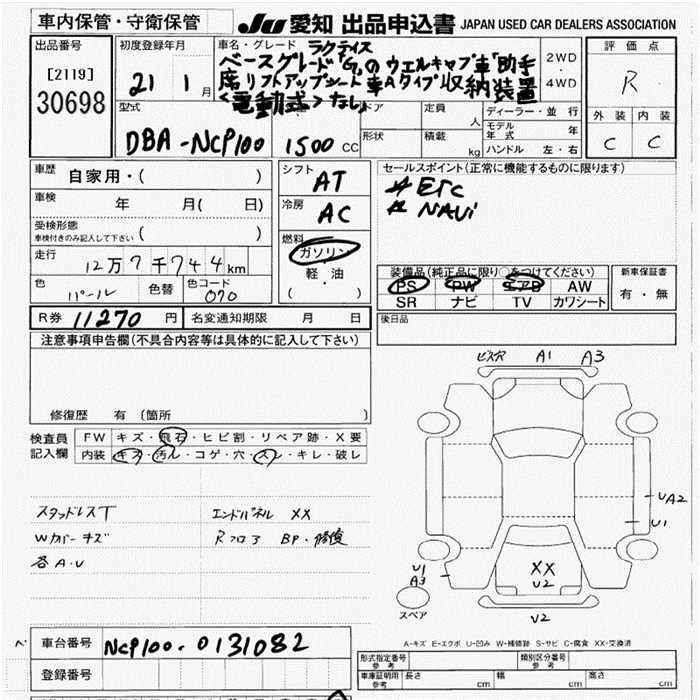 車内保管・守衛保管
JU 愛知 出品申込書 JAPAN USED CAR DEALERS ASSOCIATION
出品番号
[2119]
30698
初度登録年月
21 1月
車名・グレード ラクティス
ベースグレード「G」のウェルキャブ車「助手
席リフトアップシート車Aタイプ収納装置
<電動式>なし」
2WD
・
4WD
評価点
R
外装 内装
C C
型式
DBA-NCP100
1500 CC
ドア
形状
定員 人
積載 kg
ディーラー・並行
モデル年式 年
ハンドル 左・右
車歴 自家用・( )
車検 年 月( 日)
受検形態
車検付きのみ記入して下さい ( )
走行 12万7千744km
色 パール 色替 色コード 070
シフト AT
冷房 AC
燃料
ガソリン
・
軽・油
( )
セールスポイント(正常に機能するものに限ります)
# ETC
# NAVi
装備品(純正品に限り○をつけてください)
PS PW エアB AW
SR ナビ TV カワシート
新車保証書
有・無
R券 11270円 名変通知期限 月 日
後日品
注意事項申告欄(不具合内容等は具体的に記入して下さい)
修復歴 有 〔箇所 〕
検査員
記入欄
FW キズ・飛石・ヒビ割・リペア跡・X要
内装 キズ・汚レ・コゲ・穴・スレ・キレ・破レ
スタッドレスT
Wカバーキズ
各A・U
エンドパネル XX
Rフロア BP・修復
ビスア A1 A3
UA2
U1
XX
U2
U1
A3
スペア
U2
A-キズ E-エクボ U-凹み W-補修跡 S-サビ C-腐食 XX-交換済
車台番号 NCP100-0131082
登録番号
形式指定番号
参考
類別区分番号
参考
車庫証明用
参考
長さ cm 幅 cm 高さ cm